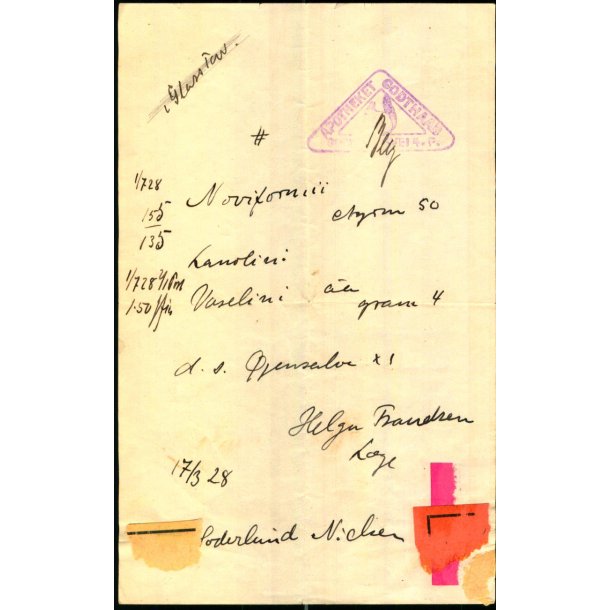 Glastav.
APOTHEKET GODTHAAB
#
1/7 28
155
135
Noviformii
ctgrm 50
Lanolini
1/7 28
1.50
Vaselini āā
gram 4
d. s. Øjensalve x 1
Helga Frandsen
Læge
17/3 28
Soderlund Nielsen